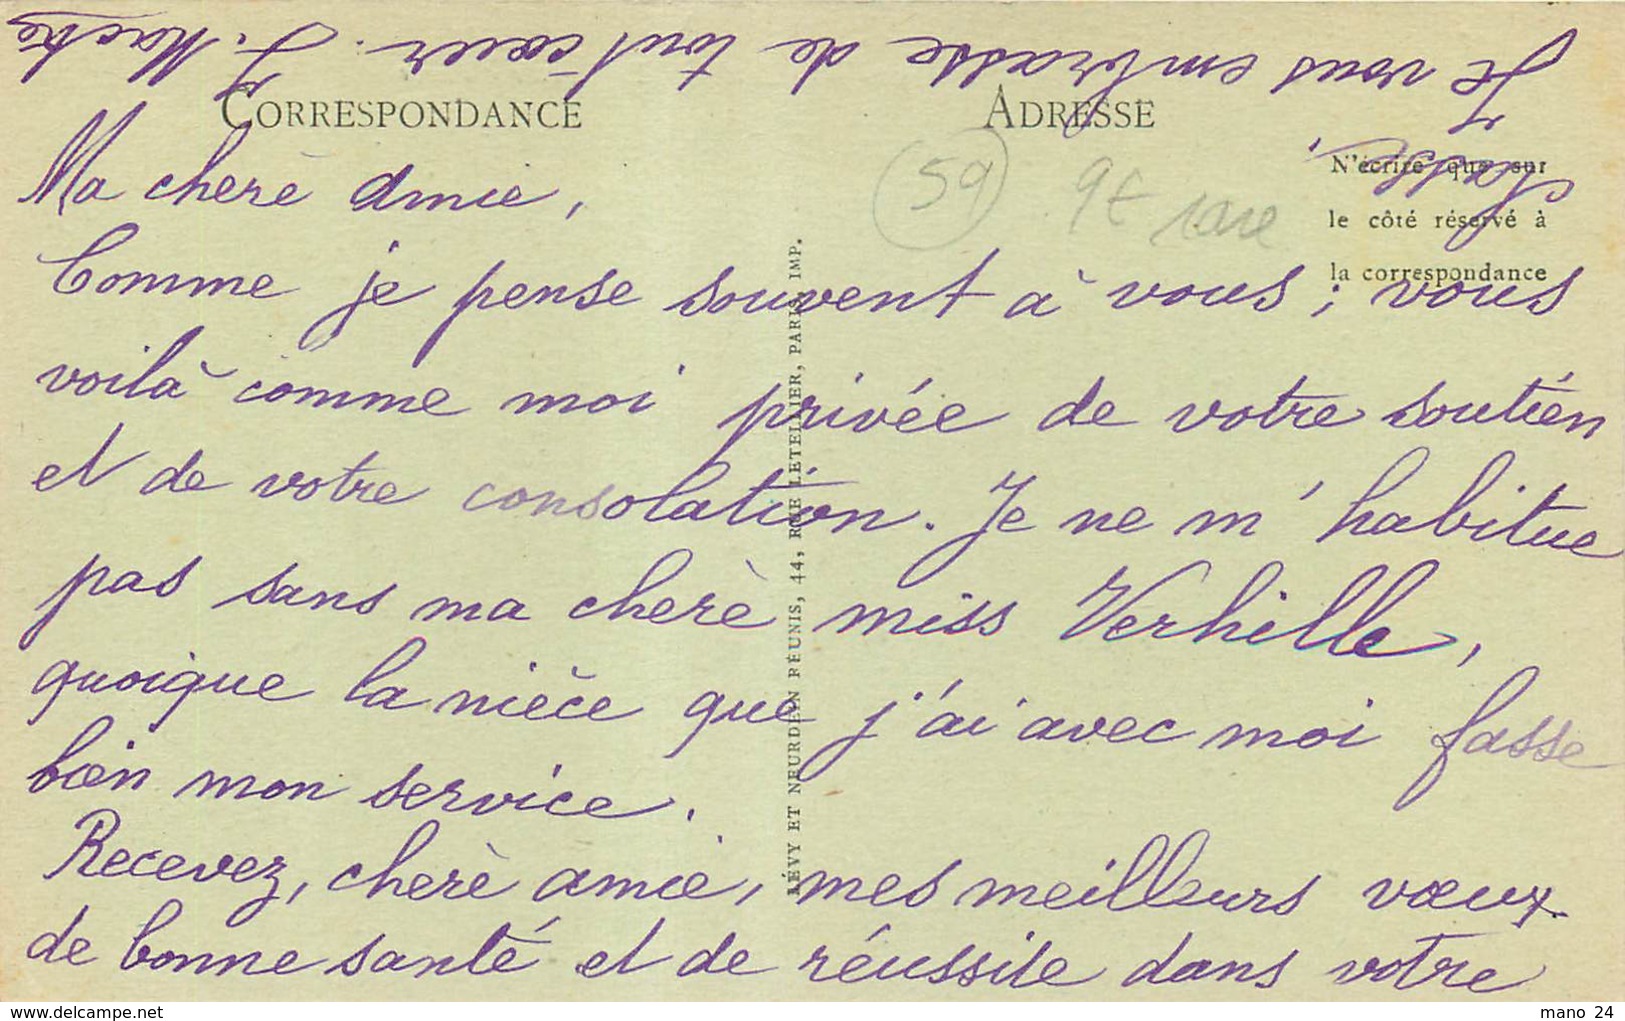 CORRESPONDANCE
ADRESSE
N'écrire que sur
le côté réservé à
la correspondance
59
9€ rare
Ma cherè amie,
Comme je pense souvent à vous ; vous
voilà comme moi privée de votre soutien
et de votre consolation. Je ne m'habitue
pas sans ma cherè miss Verhille,
quoique la nièce que j'ai avec moi fasse
bien mon service.
Recevez, cherè amie, mes meilleurs vœux
de bonne santé et de réussite dans votre
classe.
Je vous embrasse de tout cœur. J.
LÉVY ET NEURDEIN RÉUNIS, 44, RUE LETELLIER, PARIS. IMP.
www.delcampe.net
mano 24